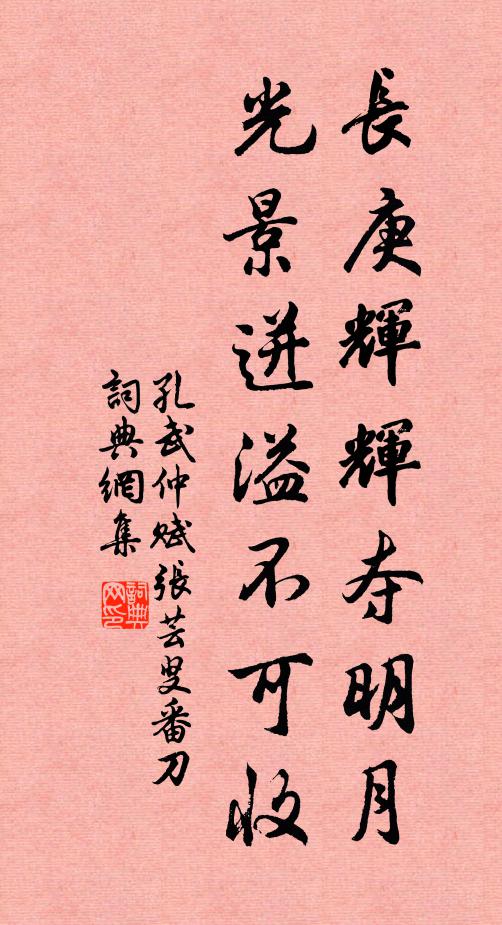 長庚輝輝夺明月
光景迸溢不可收
孔武仲赋張芸叟番刀
詞典網集
詞典
网印